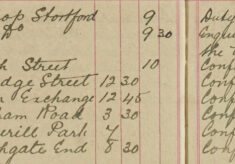 op Stortford 9 Duty
Do 9 30 Enqui
the
h Street 10 Conf
dge Street 12 30 Conf
Exchange 12 45 Conf
am Road 3 30 Conf
erill Park 7 Conf
hgate End 8 30 Conf